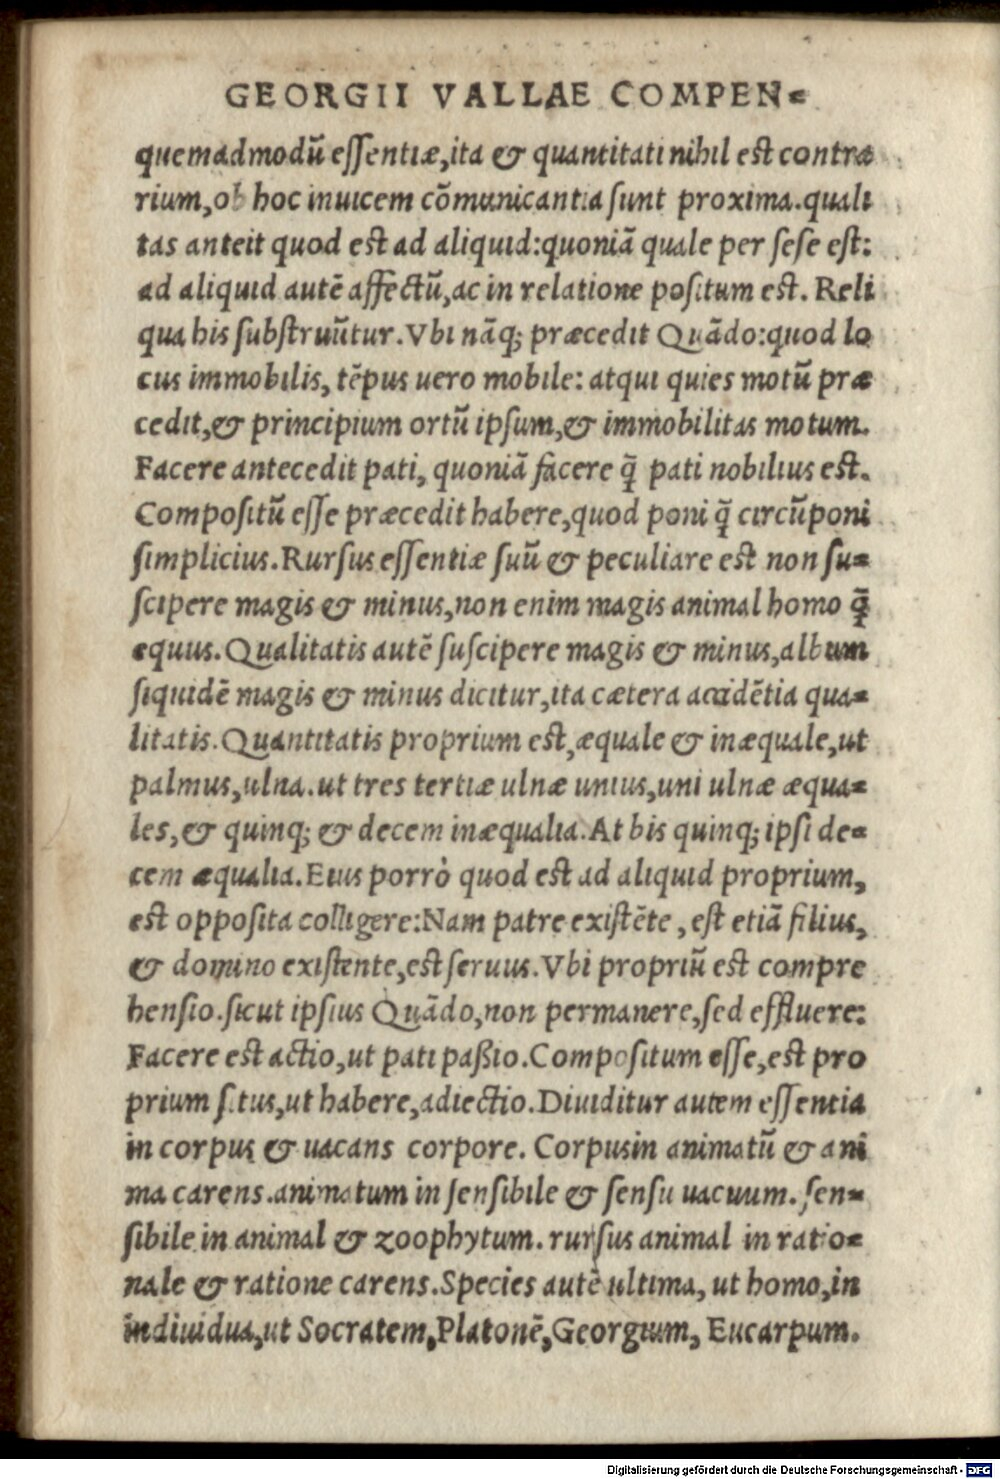 GEORGII VALLAE COMPEN⸗
quemadmodũ eſſentiæ,ita & quantitati nihil est contra
rium,ob hoc inuicem cõmunicantia ſunt proxima.quali
tas anteit quod est ad aliquid:quoniã quale per ſeſe eſt:
ad aliquid autẽ affectũ,ac in relatione poſitum eſt. Reli
qua his ſubſtruũtur.Vbi nãq; præcedit Quãdo:quod lo
cus immobilis, tẽpus uero mobile: atqui quies motũ præ
cedit,& principium ortũ ipſum,& immobilitas motum.
Facere antecedit pati, quoniã facere q̃ pati nobilius eſt.
Compoſitũ eſſe præcedit habere,quod poni q̃ circũponi
ſimplicius.Rurſus eſſentiæ ſuũ & peculiare est non ſu⸗
ſcipere magis & minus,non enim magis animal homo q̃
equus.Qualitatis autẽ ſuſcipere magis & minus,album
ſiquidẽ magis & minus dicitur,ita cætera accidẽtia qua⸗
litatis.Quantitatis proprium est,æquale & inæquale,ut
palmus,ulna.ut tres tertiæ ulnæ unius,uni ulnæ æqua⸗
les,& quinq; & decem inæqualia.At bis quinq; ipſi de⸗
cem æqualia.Eius porrò quod est ad aliquid proprium,
est oppoſita colligere:Nam patre exiſtẽte, eſt etiã filius,
& domino exiſtente,est ſeruus.Vbi propriũ est compre
henſio.ſicut ipſius Quãdo,non permanere,ſed effluere:
Facere est actio,ut pati paßio.Compoſitum eſſe,est pro
prium ſitus,ut habere,adiectio.Diuiditur autem eſſentia
in corpus & uacans corpore. Corpusin animatũ & ani
ma carens.animatum in ſenſibile & ſenſu uacuum. ſen⸗
ſibile in animal & zoophytum. rurſus animal in ratio⸗
nale & ratione carens.Species autẽ ultima, ut homo,in
indiuidua,ut Socratem,Platonẽ,Georgium, Eucarpum.
Digitalisierung gefördert durch die Deutsche Forschungsgemeinschaft - DFG